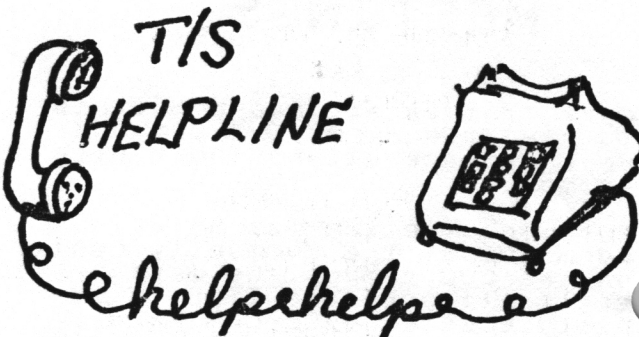 T/S
HELPLINE
helpehelpe